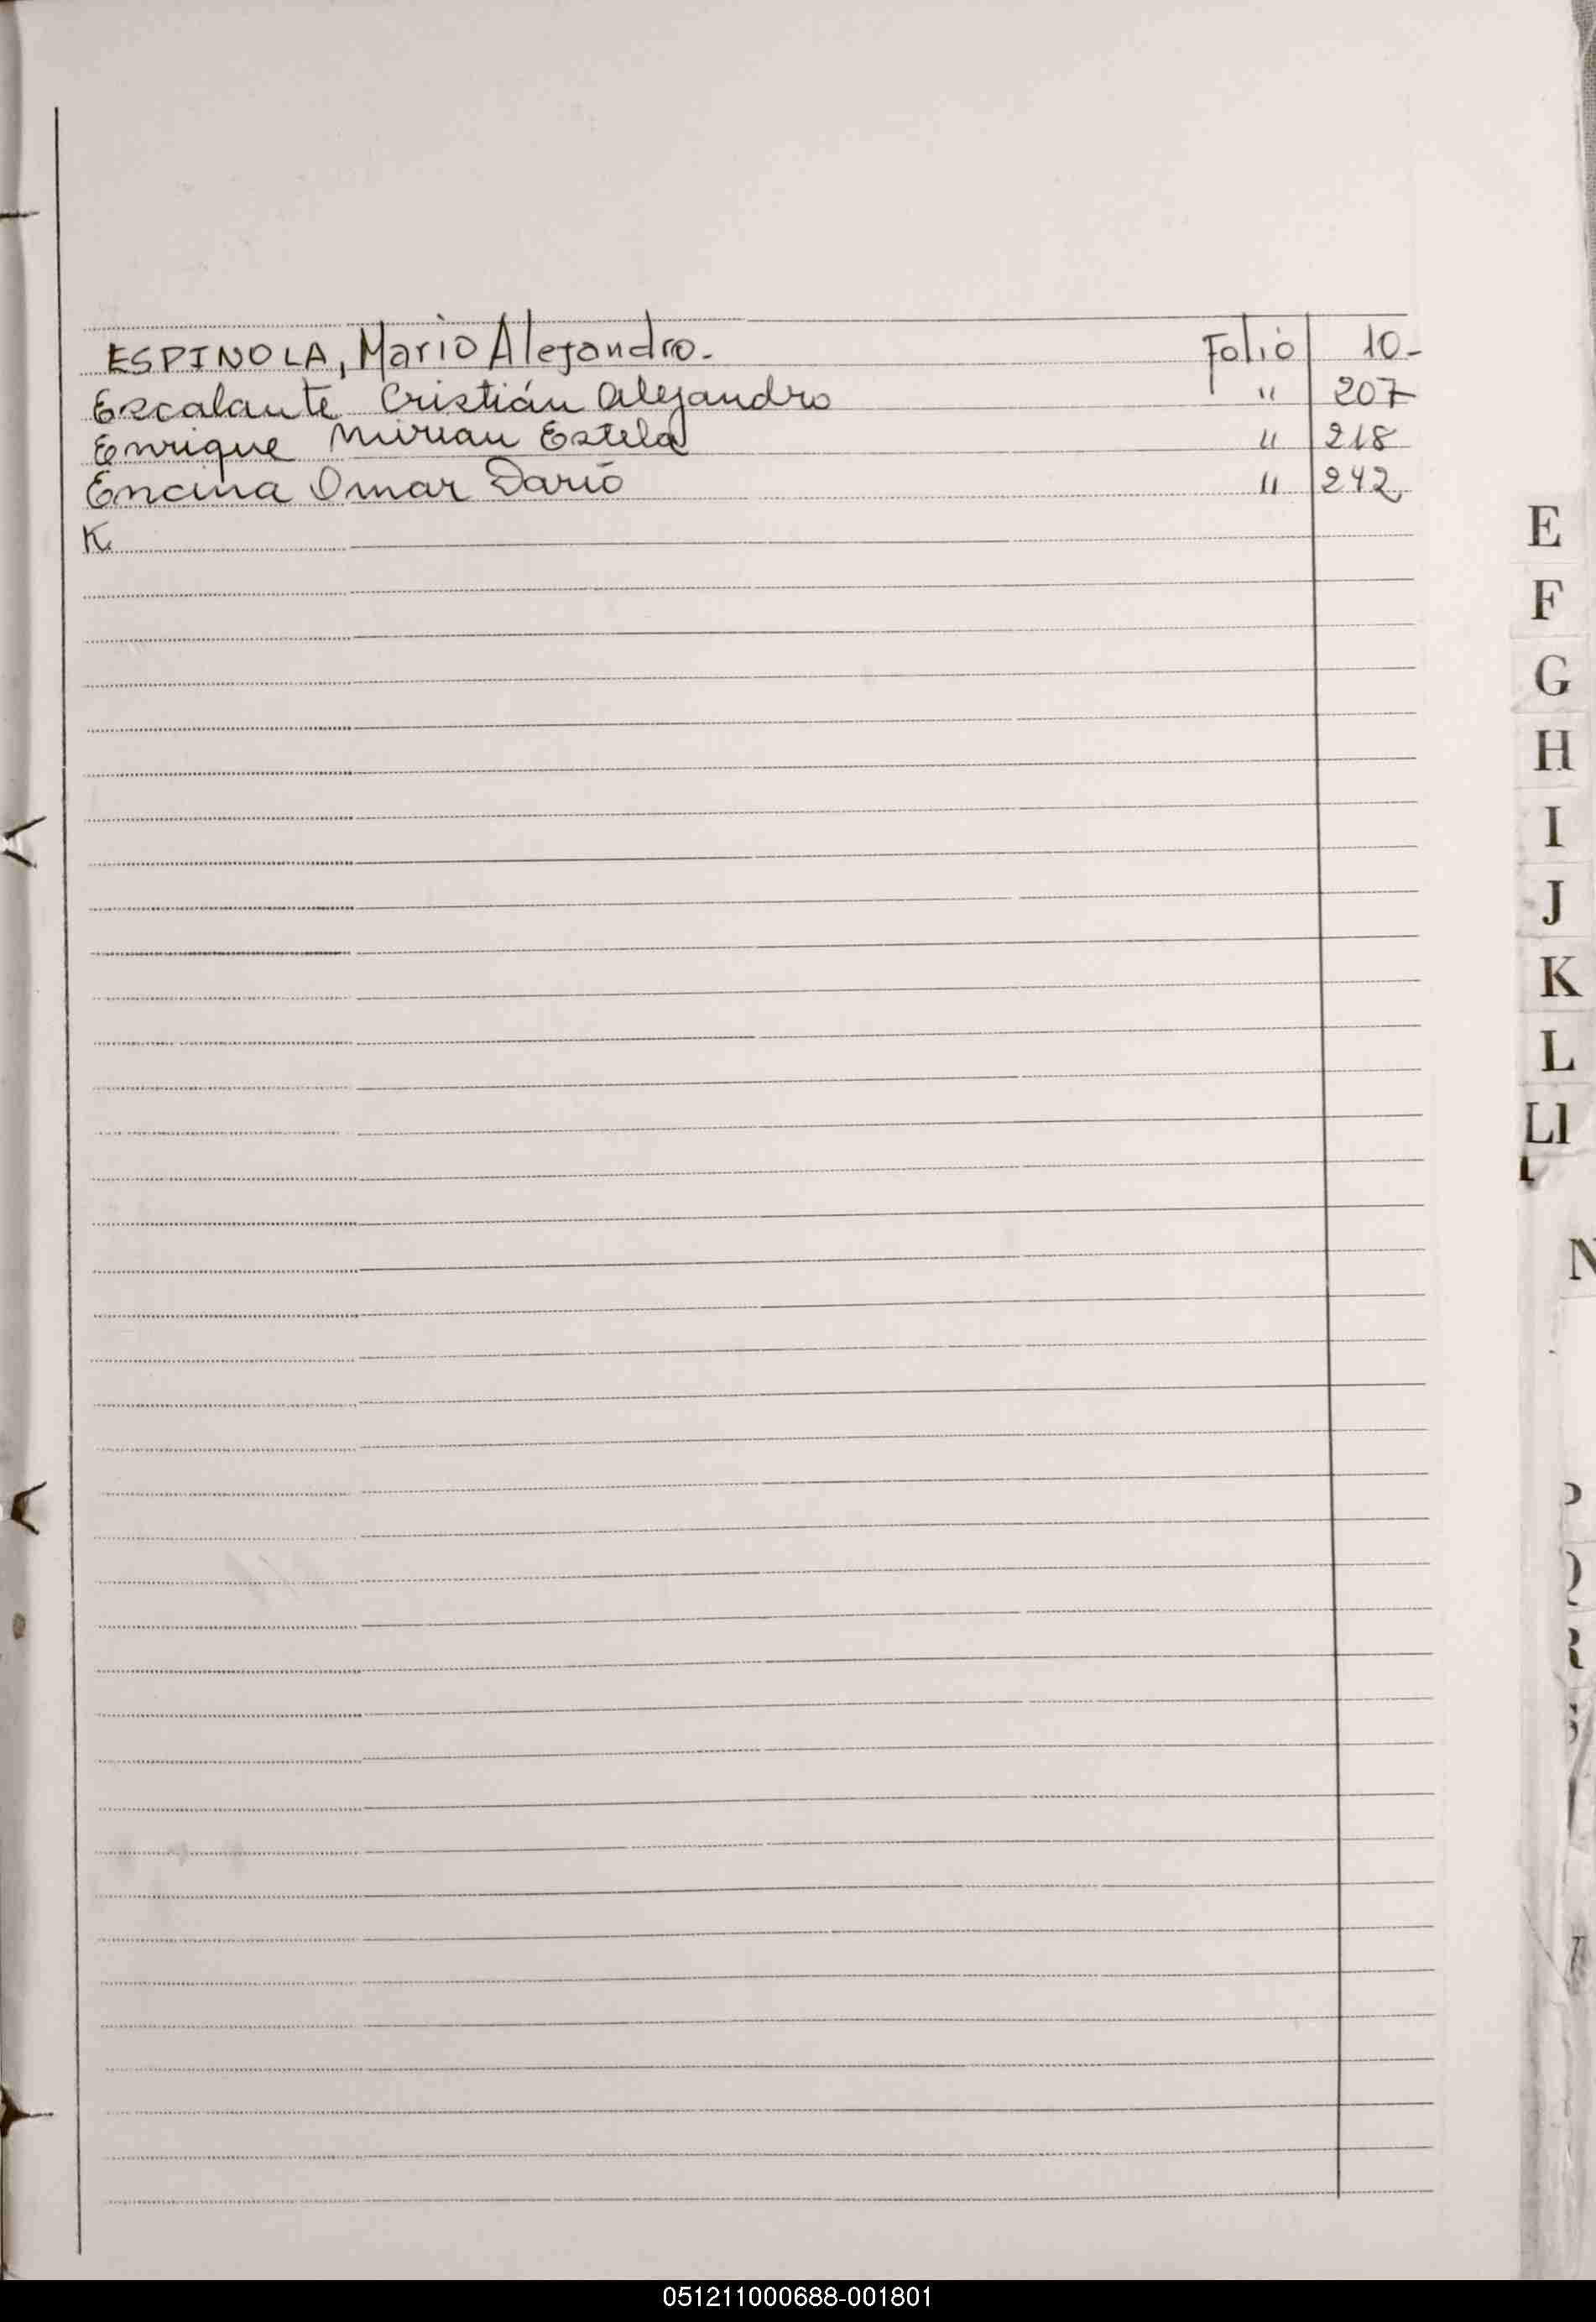 ESPINOLA, Mario Alejandro. Folio 10-
Escalante Cristián Alejandro " 207
Enrique Mirian Estela " 218
Encina Omar Darío " 242
K
E
F
G
H
I
J
K
L
Ll
N
R
051211000688-001801